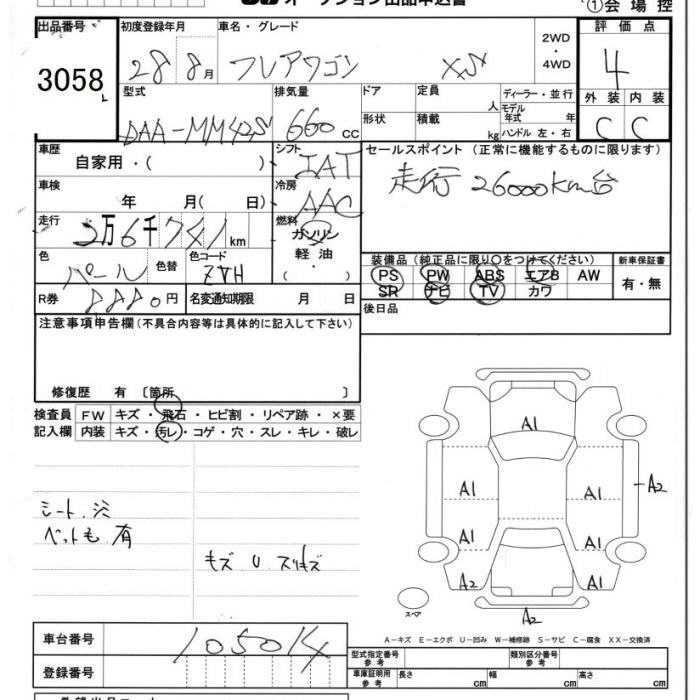 ①会場控
出品番号 初度登録年月 車名・グレード 2WD ・ 4WD 評価点
3058 28 8月 フレアワゴン XS 4
外装 内装
C C
型式 排気量 ドア 定員 人 ディーラー・並行
DAA-MM42S 660cc 形状 積載 kg モデル年式 年
ハンドル 左・右
車歴 自家用・( ) シフト IAT セールスポイント(正常に機能するものに限ります)
車検 年 月( 日) 冷房 AAC 走行 26000km台
走行 2万6千741km 燃料 ガソリン 軽油 ・( )
色 パール 色替 色コード ZVH
装備品(純正品に限り○をつけてください) 新車保証書
PS PW ABS エアB AW 有・無
SR ナビ TV カワ
R券 円 名変通知期限 月 日 後日品
注意事項申告欄(不具合内容等は具体的に記入して下さい)
修復歴 有 〔箇所 〕
検査員 FW キズ・飛石・ヒビ割・リペア跡・×要
記入欄 内装 キズ・汚レ・コゲ・穴・スレ・キレ・破レ
シート.シミ
ペット毛.有
キズ U スリキズ
A1
A1 A1 A2
A1 A1
A2 A1
スペア A2
A-キズ E-エクボ U-凹み W-補修跡 S-サビ C-腐食 XX-交換済
車台番号 105014
登録番号
型式指定番号 参考 類別区分番号 参考
車庫証明用 参考 長さ cm 幅 cm 高さ cm